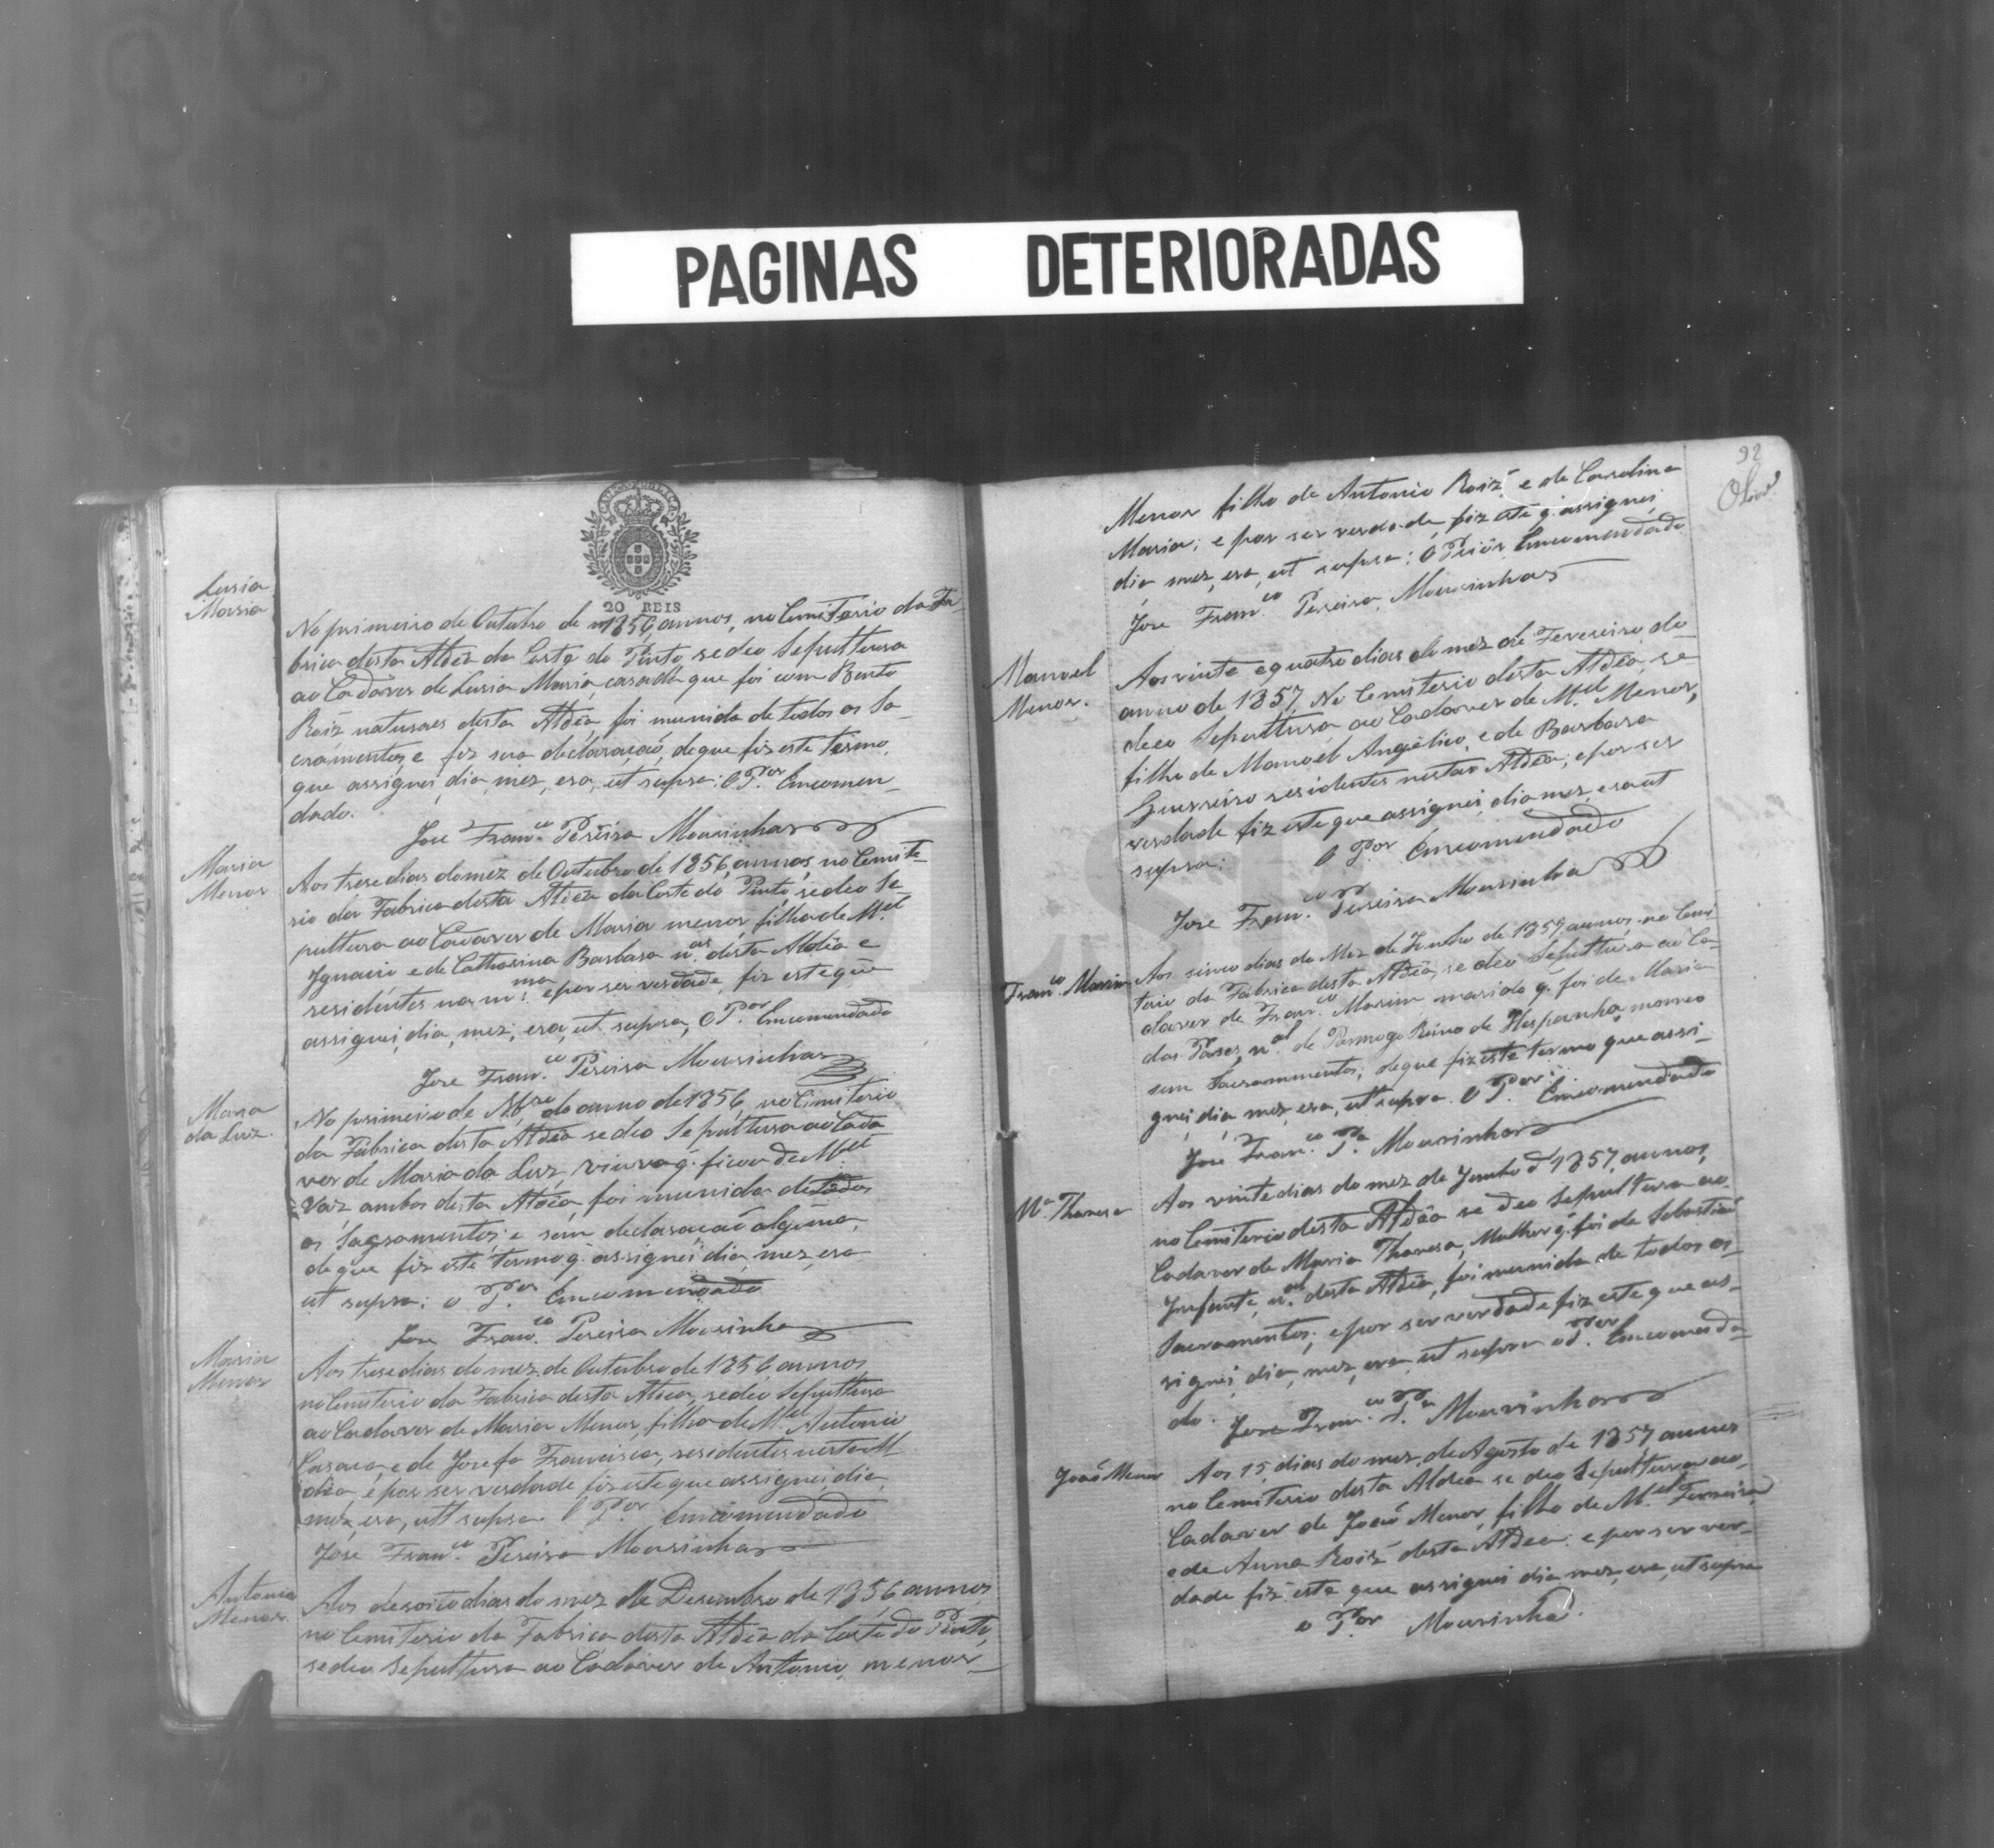 PAGINAS DETERIORADAS
20 REIS
Lusia
Maria
No primeiro de Outubro de 1856, annos, no Cemiterio da Fa-
brica desta Aldêa da Corte do Pinto, se deo Sepulttura
ao Cadaver de Lusia Maria, casada que foi com Bento
Roiz naturaes desta Aldêa, foi munida de todos os Sa-
cramentos, e fez sua declaração, de que fiz este termo,
que assignei, dia, mez, era, ut supra: O P.or Encomen-
dado.
Jose Fran.co Pereira Mousinho
Maria
Menor
Aos trese dias do mez de Outubro de 1856, annos, no Cemite-
rio da Fabrica desta Aldêa da Corte do Pinto, se deo Se-
pulttura ao Cadaver de Maria menor, filha de M.el
Ignacio e de Catharina Barbara n.as desta Aldêa e
residentes na m.ma: e por ser verdade, fiz este que
assignei, dia, mez, era, ut supra, O P.or Encomendado
Jose Fran.co Pereira Mousinho
Maria
da Luz.
No primeiro de N.bro do anno de 1856, no Cemiterio
da Fabrica desta Aldêa se deo Sepulttura ao Cada
ver de Maria da Luz, viuva q. ficou de M.el
Vaz ambos desta Aldêa, foi munida de todos
os Sagramentos, e sem declaração algûma,
de que fiz este termo q. assignei dia, mez, era
ut supra: o P.or Encomendado
Jose Fran.co Pereira Mousinho
Maria
Menor
Aos trese dias do mez de Outubro de 1856 annos,
no Cemiterio da Fabrica desta Aldea, se deo Sepulttura
ao Cadaver de Maria Menor, filha de M.el Antonio
e de Josefa Francisca, residentes nesta Al
dêa, e por ser verdade fiz este que assignei, dia,
mez, era, ut supra. O P.or Encomendado
Jose Fran.co Pereira Mousinho
Antonio
Menor.
Aos desoito dias do mez de Desembro de 1856 annos,
no Cemiterio da Fabrica desta Aldêa da Corte do Pinto,
se deo Sepulttura ao Cadaver de Antonio, menor
92
Menor filho de Antonio Roiz, e de Carolina
Maria; e por ser verdade, fiz este q. assignei,
dia, mez, era, ut supra: O Priôr Encomendado
Jose Fran.co Pereira Mousinho
Manoel
Menor.
Aos vinte e quatro dias do mez de Fevereiro do
anno de 1857, No Cemiterio desta Aldêa, se
deo Sepulttura ao Cadaver de M.el Menor,
filho de Manoel Angelico, e de Barbara
Guerreiro residentes nestar Aldêa; e por ser
verdade fiz este que assignei, dia mez, era ut
supra: O P.or Encomendado
Jose Fran.co Pereira Mousinho
Fran.co Marim
Aos sinco dias do Mez de Junho de 1857, annos, no Cemi
terio da Fabrica desta Aldêa, se deo Sepulttura ao Ca-
daver de Fran.co Marim marido q. foi de Maria
das n.al de Reino de Hespanha, morreo
sem Sacrammentos; de que fiz este termo que assi-
gnei, dia, mez, era, ut supra. O P.or: Encomendado
Jose Fran.co P.ra Mousinho
M.a Theresa
Aos vinte dias do mez de Junho d 1857, annos,
no Cemiterio desta Aldêa se deo Sepulttura ao
Cadaver de Maria Theresa, Mulher q. foi de Sebastião
Infante, n.al desta Aldêa, foi munida de todos os
Sacramentos; e por ser verdade fiz este que as-
signei, dia, mez, era, ut supra o P.or Encomenda-
do. Jose Fran.co P.ra Mousinho
João Menor
Aos 15, dias do mez, de Agosto de 1857 annos
no Cemiterio desta Aldêa se deo Sepulttura ao
Cadaver de João Menor, filho de M.el Ferreira
e de Anna Roiz desta Aldea: e por ser ver-
dade fiz este que assignei dia mez, era, ut supra
o P.or Mousinho.